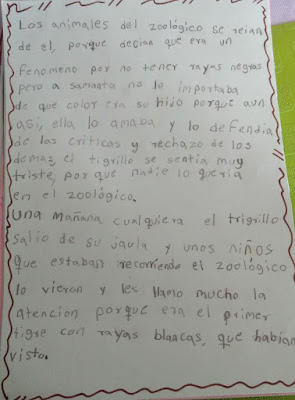 Los animales del zoológico se reian
de el, porque decian que era un
fenomeno por no tener rayas negras
pero a samanta no lo importaba
de que color era su hijo porque aun
asi, ella lo amaba y lo defendia
de las criticas y rechazo de los
demaz el tigrillo se sentia muy
triste, por que nadie lo queria
en el zoológico.
una mañana cualquiera el trigrillo
salio de su jaula y unos niños
que estaban recorriendo el zoológico
lo vieron y les llamo mucho la
atencion porque era el primer
tigre con rayas blancas, que habian
visto.